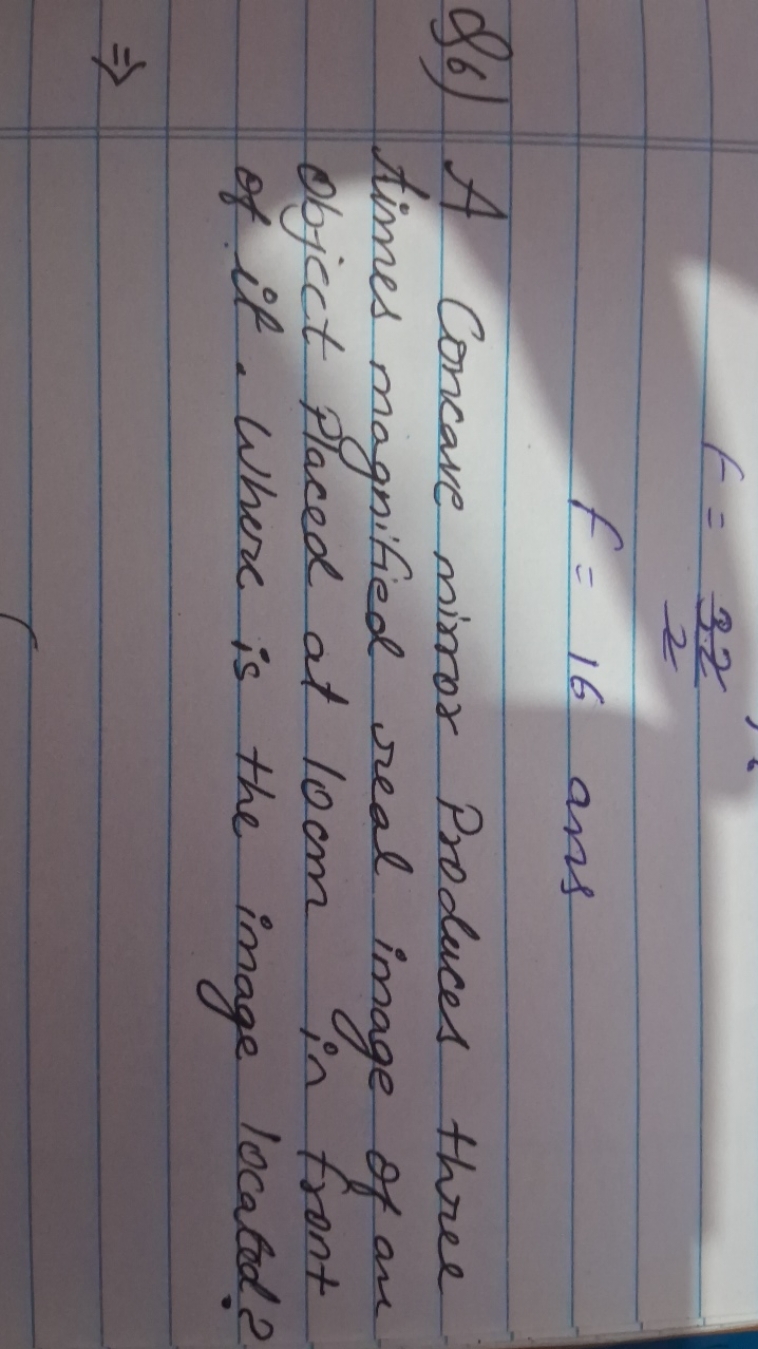 f = 32/2
f = 16 ans
Q6) A Concave mirror Produces three
times magnified real image of an
object Placed at 10cm in front
of it. Where is the image located?
⇒